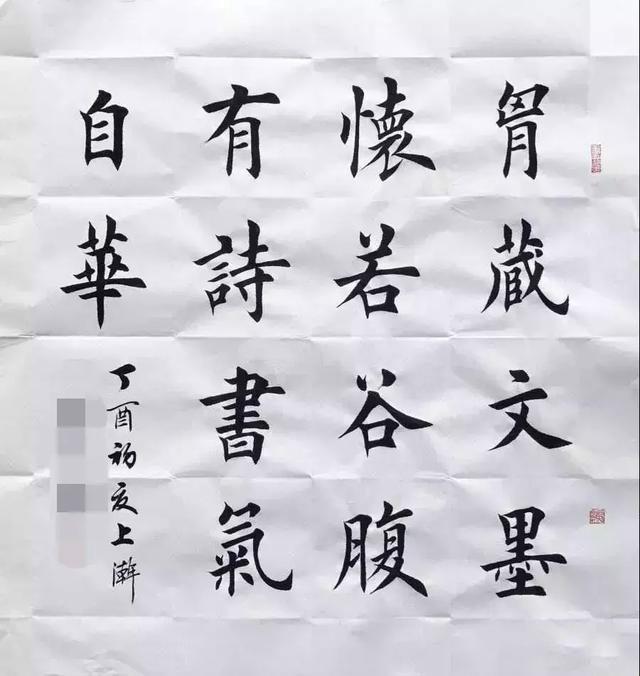 胷藏文墨
懷若谷腹
有詩書氣
自華
丁酉初夏上澣